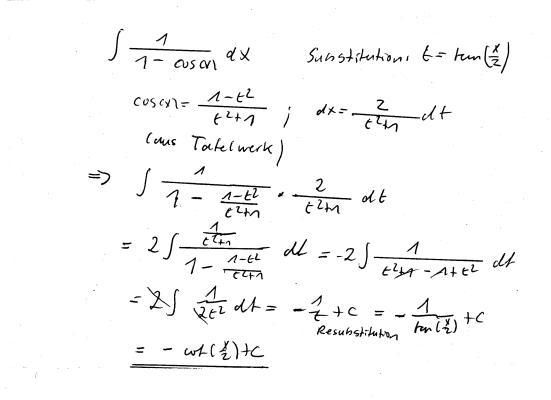 ∫ 1/(1 - cos(x)) dx Substitution: t = tan(x/2)
cos(x) = (1-t²)/(t²+1) ; dx = 2/(t²+1) dt
(aus Tafelwerk)
⇒ ∫ 1/(1 - (1-t²)/(t²+1)) · 2/(t²+1) dt
= 2∫ (1/(t²+1))/(1 - (1-t²)/(t²+1)) dt = -2∫ 1/(t²+1 - 1+t²) dt
= 2∫ 1/(2t²) dt = -1/t + c = -1/tan(x/2) + c
Resubstitution
= - cot(x/2) + c